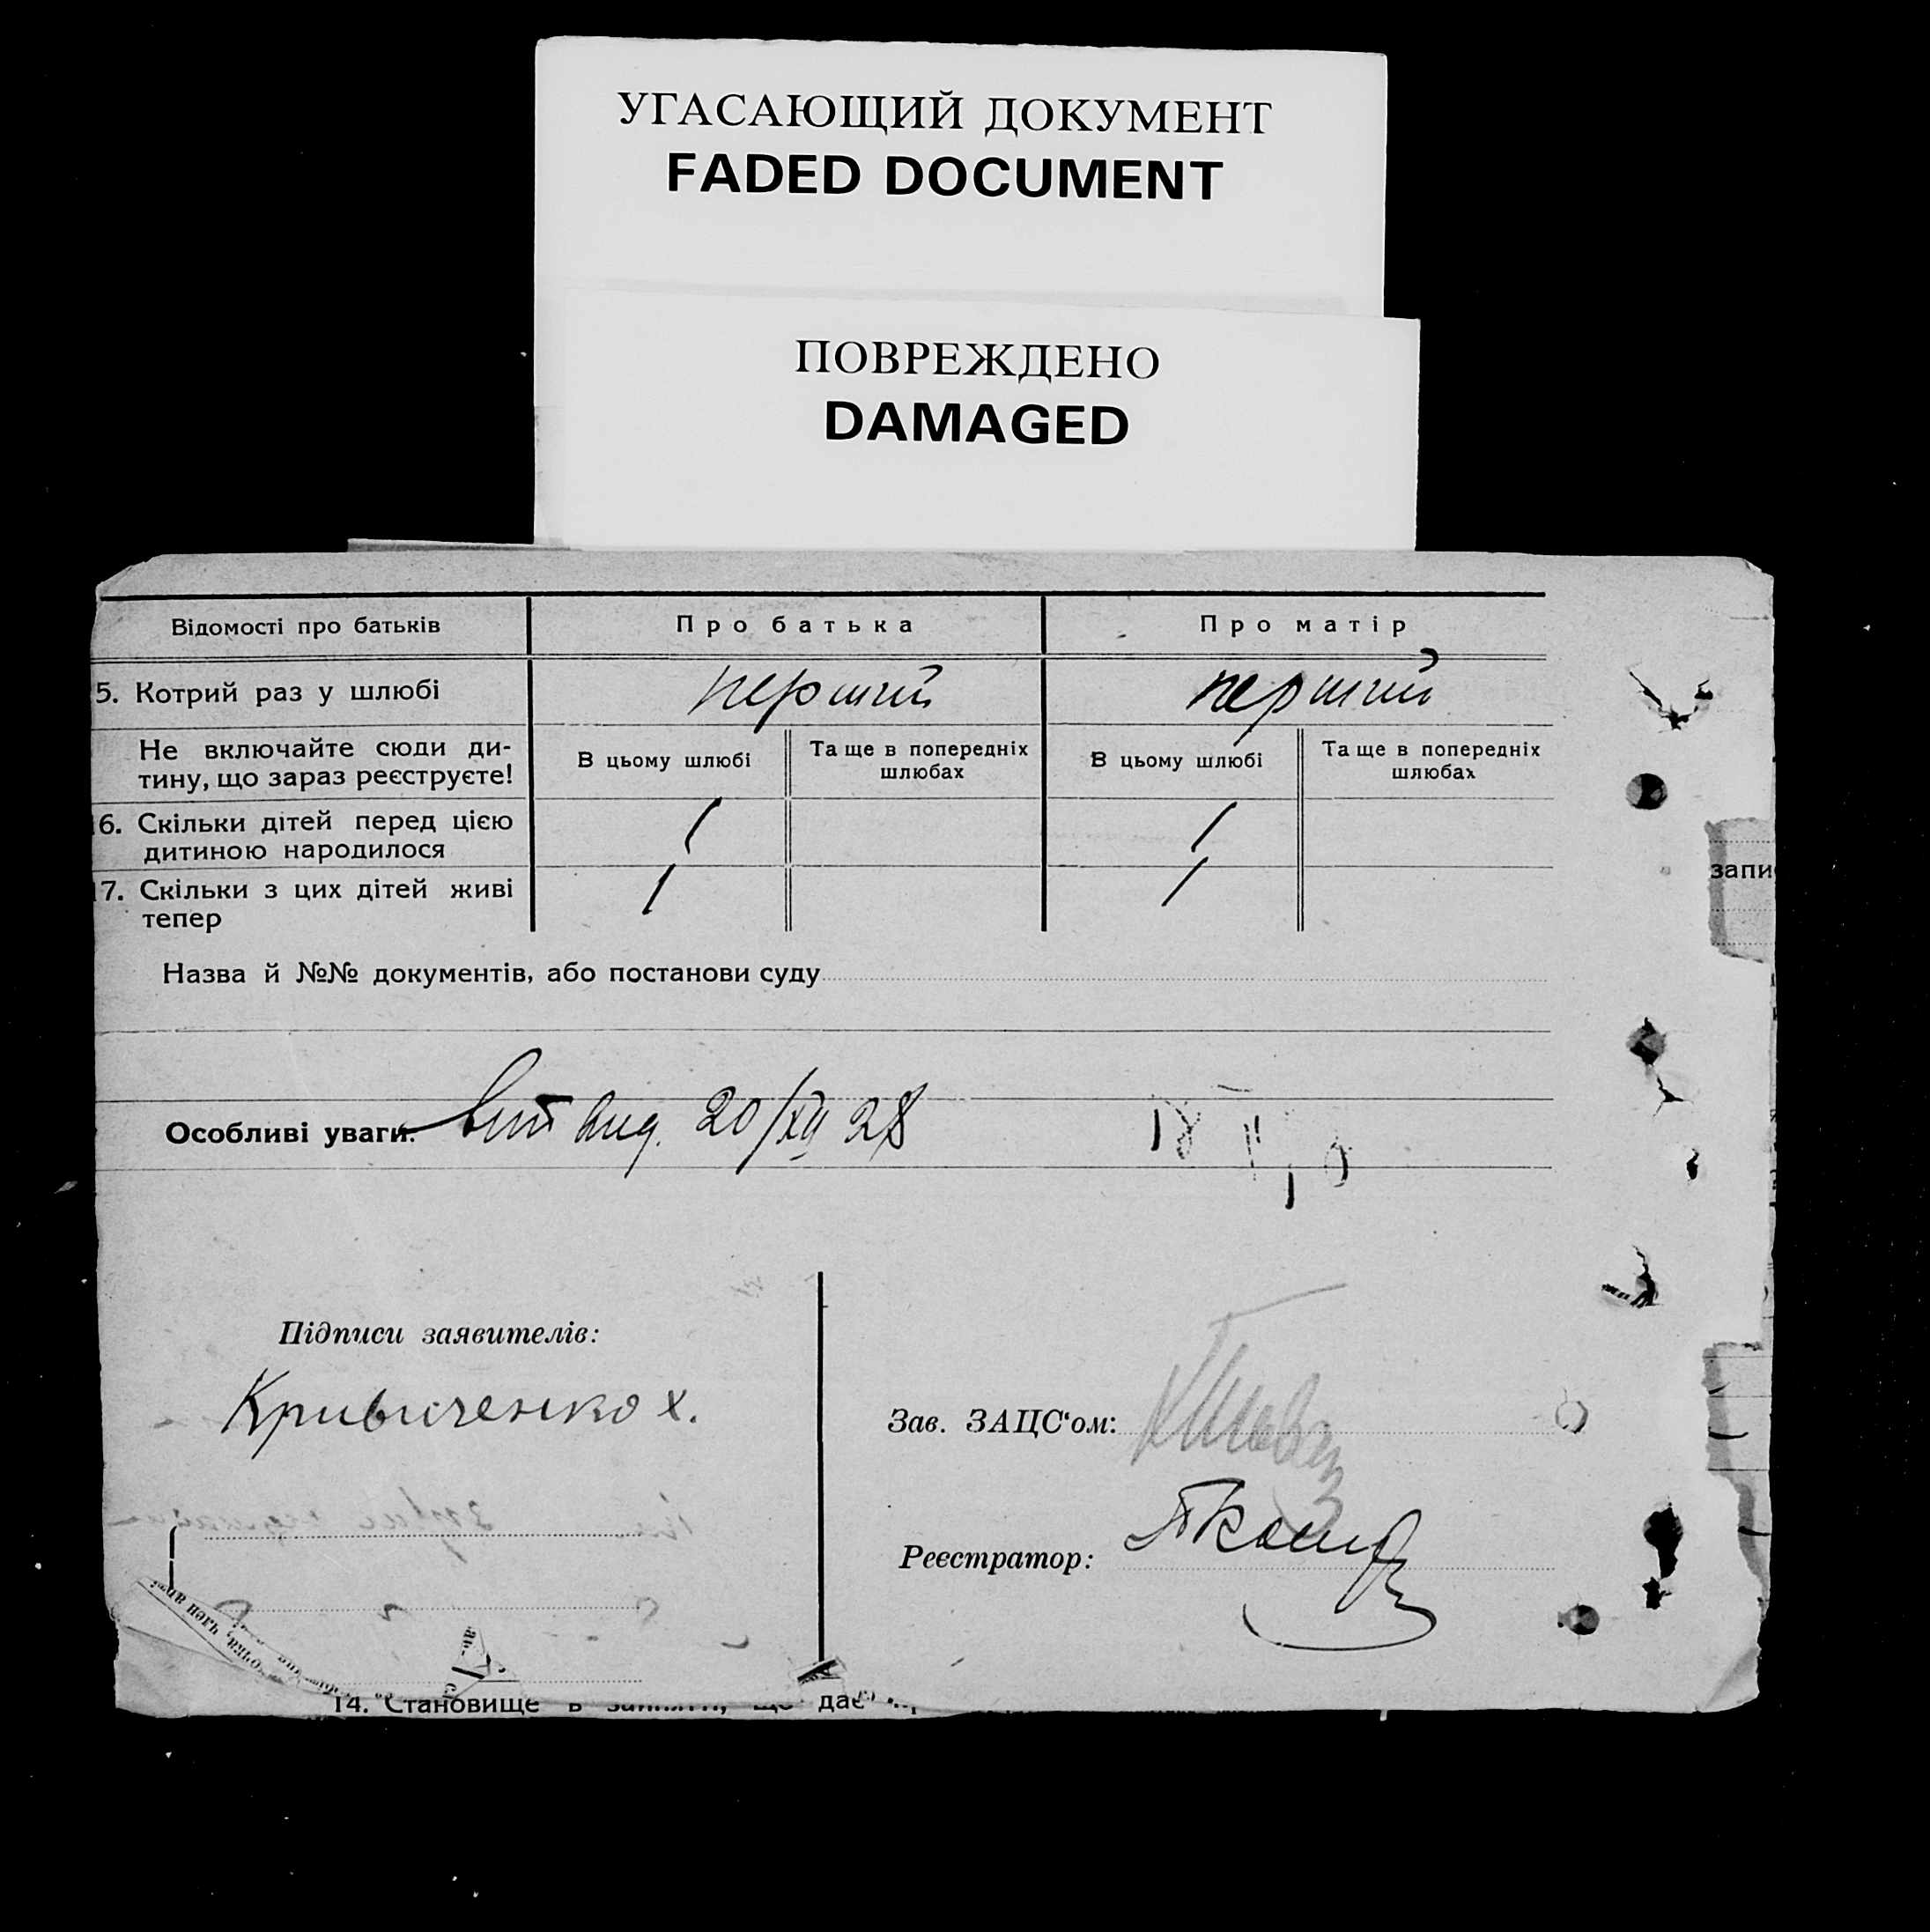 УГАСАЮЩИЙ ДОКУМЕНТ
FADED DOCUMENT
ПОВРЕЖДЕНО
DAMAGED
Відомості про батьків
Про батька
Про матір
5. Котрий раз у шлюбі
перший
перший
Не включайте сюди ди-
тину, що зараз реєструєте!
В цьому шлюбі
Та ще в попередніх
шлюбах
В цьому шлюбі
Та ще в попередніх
шлюбах
6. Скільки дітей перед цією
дитиною народилося
1
1
17. Скільки з цих дітей живі
тепер
1
1
запи
Назва й №№ документів, або постанови суду
Особливі уваги:
вит вид. 20/XII 28
Підписи заявителів:
Кривиченко х.
Зав. ЗАЦС‘ом:
Реєстратор:
14. Становище в